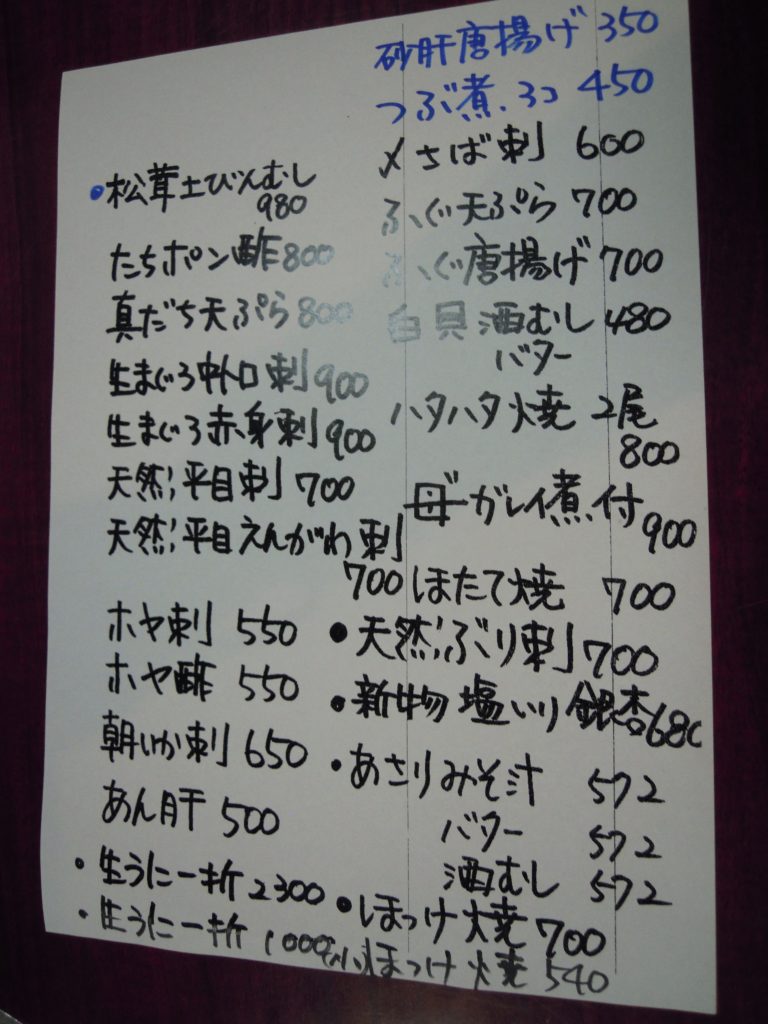 砂肝唐揚げ 350
つぶ煮.3コ 450
〆さば刺 600
ふぐ天ぷら 700
ふぐ唐揚げ 700
白貝酒むし 480
バター
ハタハタ焼 2尾
800
ガレイ煮付
900
ほたて焼 700
・天然ぶり刺 700
・新物塩いり銀杏 680
・あさりみそ汁 572
バター 572
酒むし 572
・ほっけ焼 700
小ほっけ焼 540
・松茸土びんむし
980
たちポン酢 800
真だち天ぷら 800
生まぐろ中トロ刺 900
生まぐろ赤身刺 900
天然平目刺 700
天然平目えんがわ刺
700
ホヤ刺 550
ホヤ酢 550
朝いか刺 650
あん肝 500
・生うに一折 2300
・生うに一折 1000